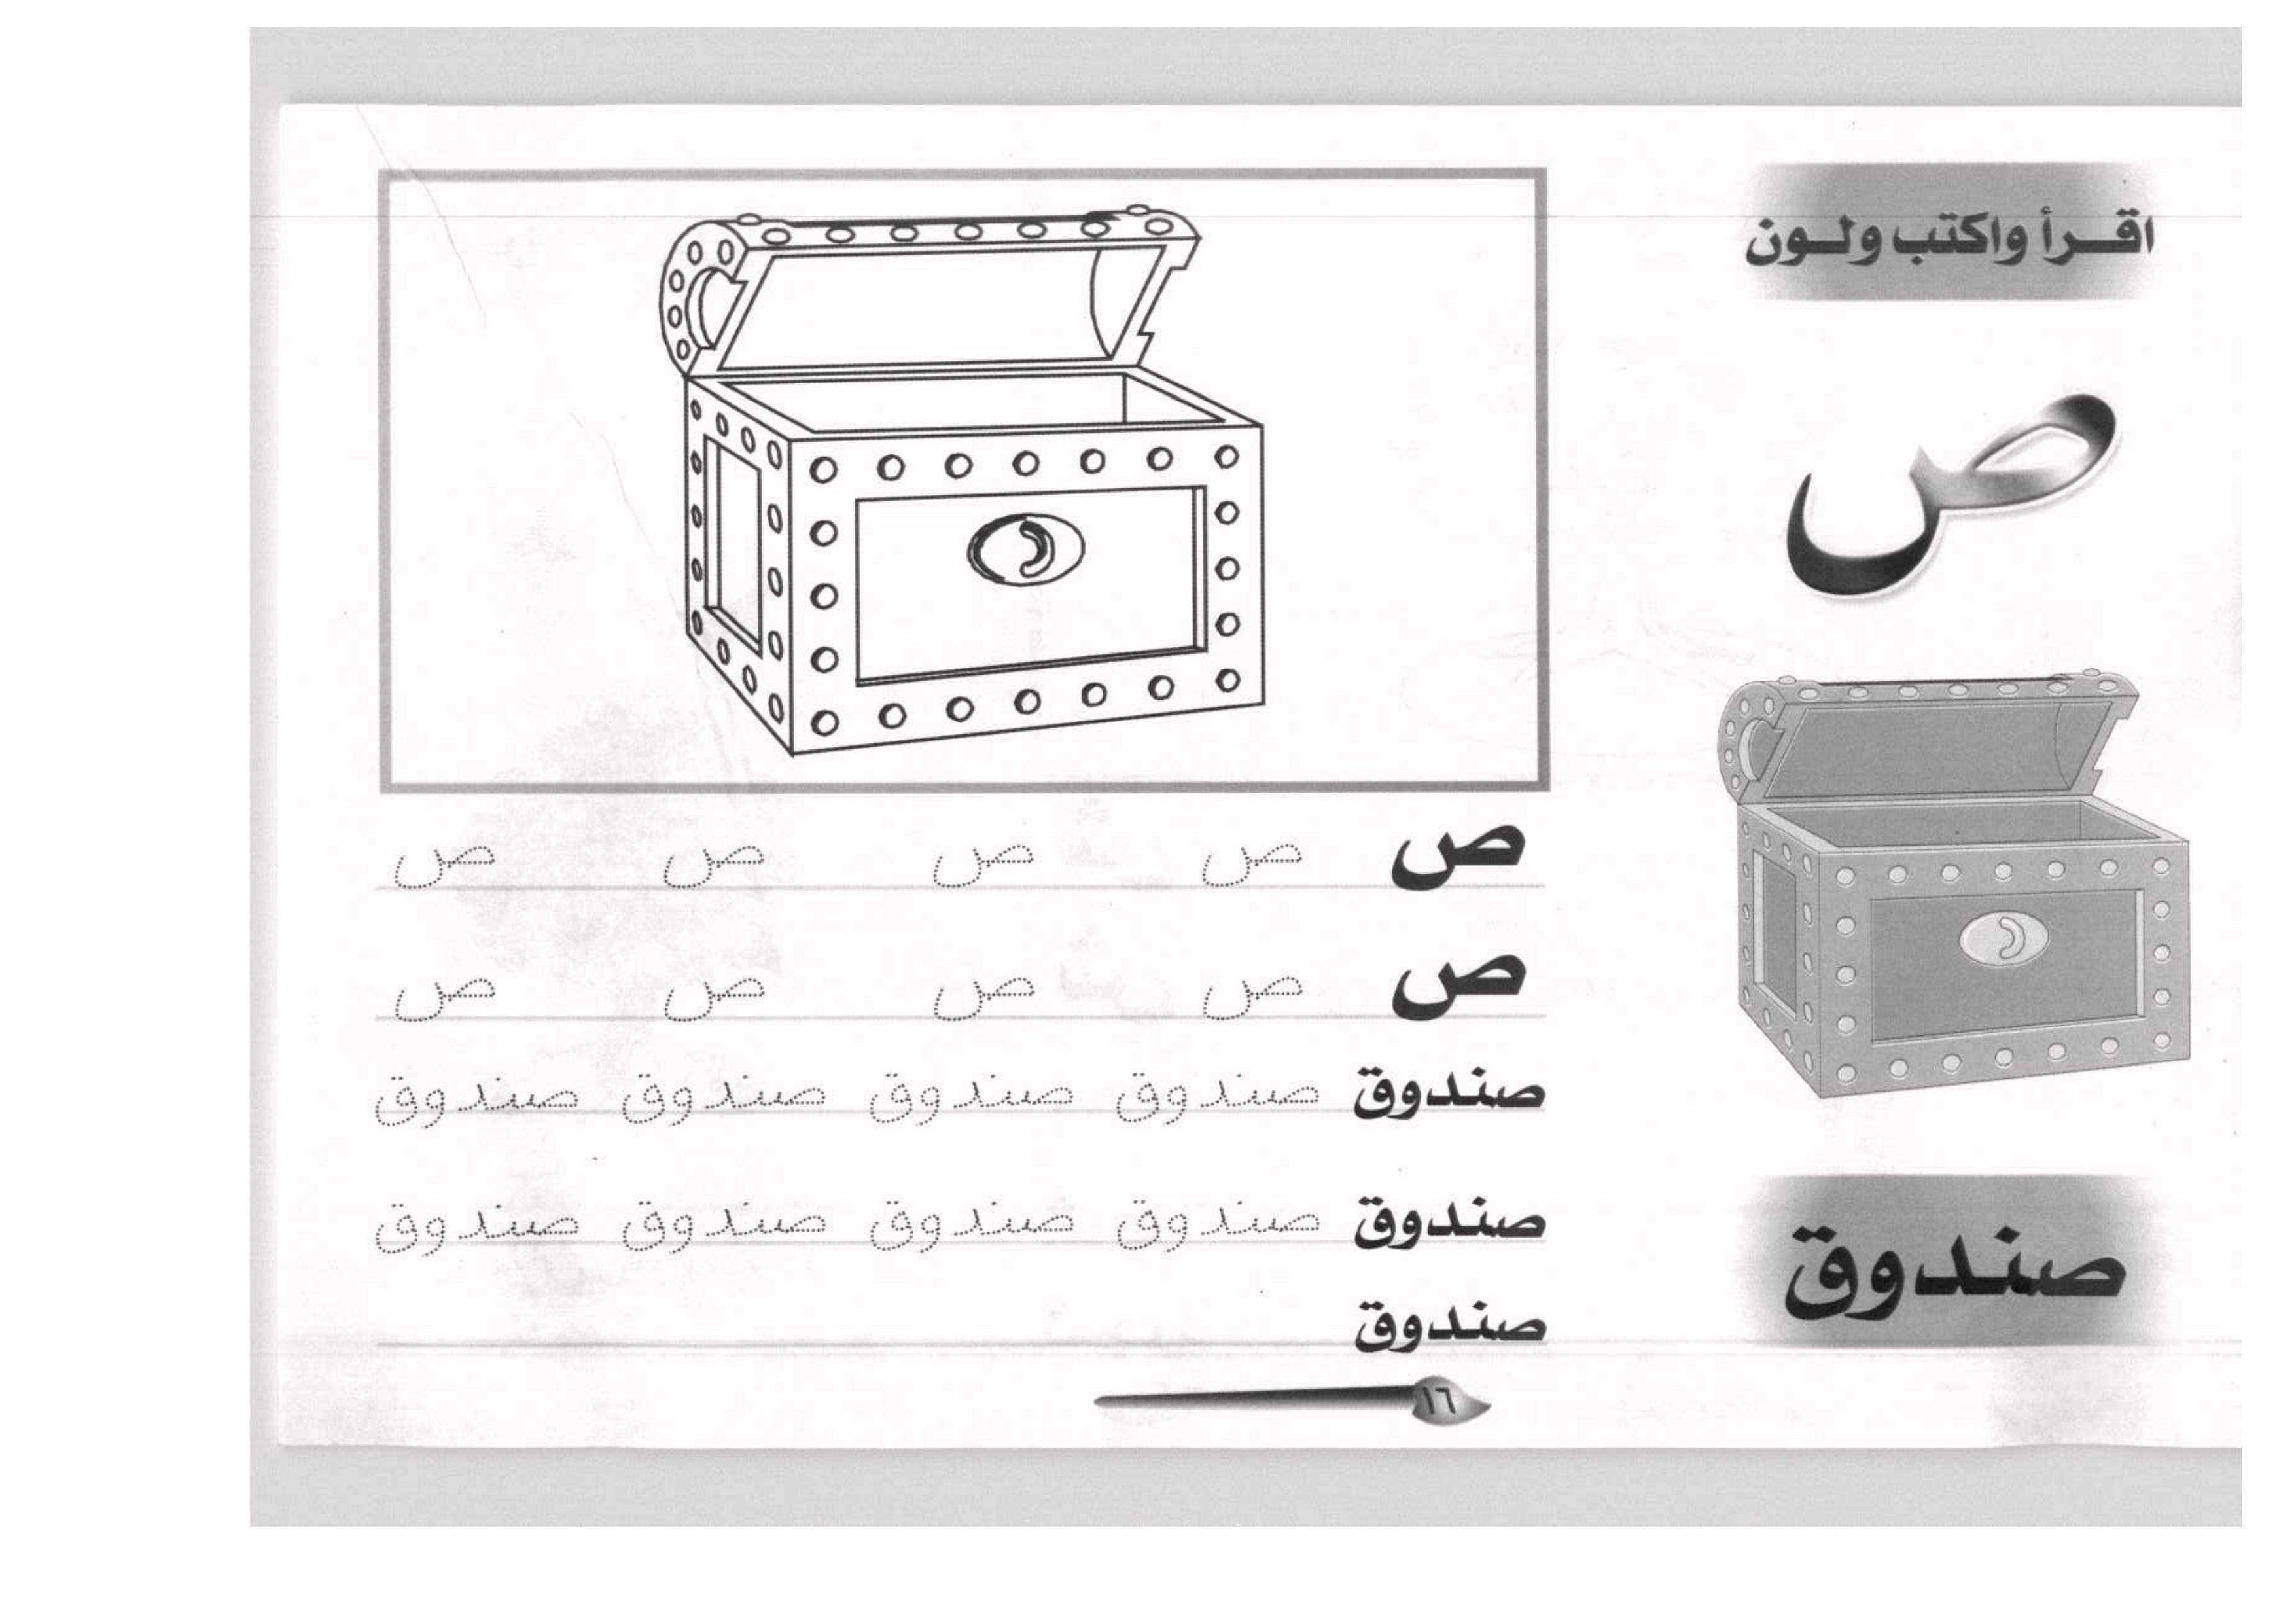 اقـرأ واكتب ولـون
ص
صندوق
ص ص ص ص ص
ص ص ص ص ص
صندوق صندوق صندوق صندوق صندوق
صندوق صندوق صندوق صندوق صندوق
صندوق
١٦